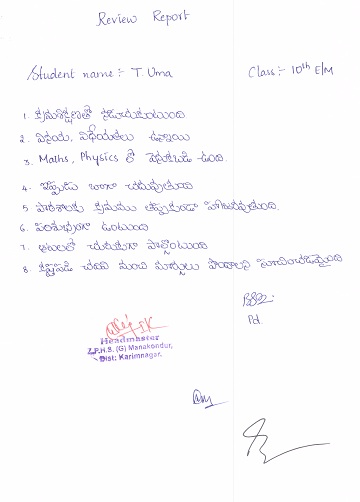 Review Report
Student name :- T. Uma
Class :- 10th E/M
1. క్రమశిక్షణతో నడుచుకుంటుంది
2. వినయ, విధేయతలు ఉన్నాయి
3. Maths, Physics లో వెనుకబడి ఉంది.
4. ఇప్పుడు బాగా చదువుతుంది
5 పాఠశాలకు క్రమము తప్పకుండా హాజరవుతుంది.
6. పరిశుభ్రంగా ఉంటుంది
7. ఆటలలో చురుకుగా పాల్గొంటుంది
8. కష్టపడి చదివి మంచి మార్కులు పొందాలని సూచించడమైనది
Pd.
Headmaster
Z.P.H.S. (G) Manakondur,
Dist: Karimnagar.